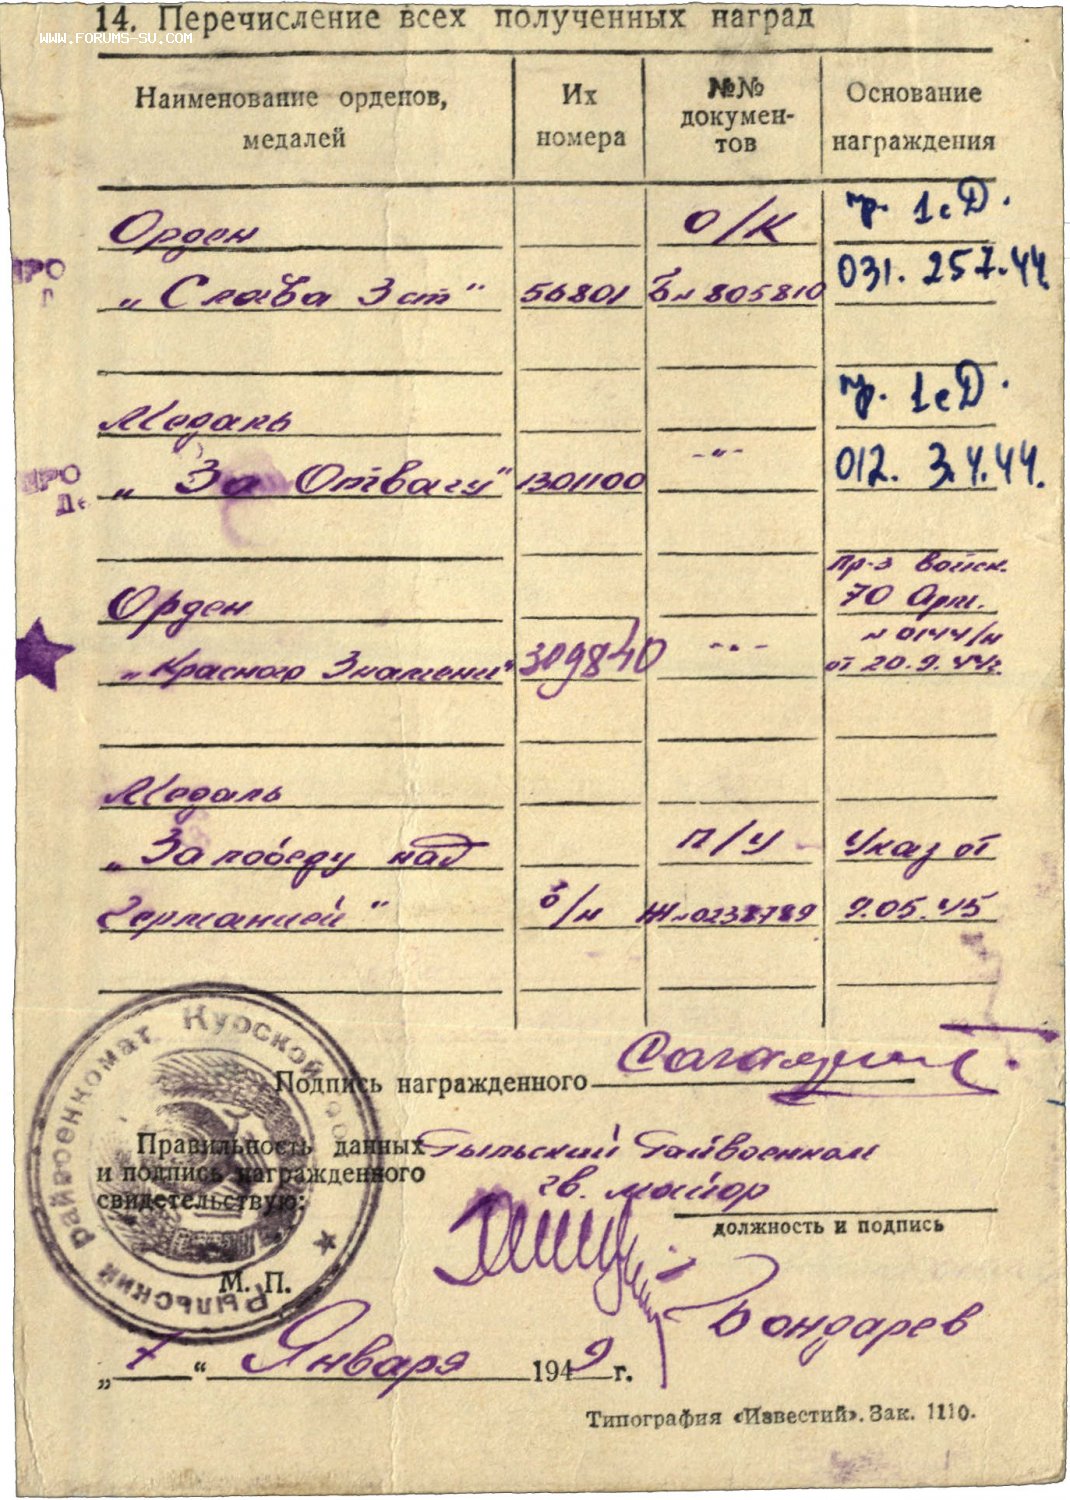 14. Перечисление всех полученных наград
WWW.FORUMS-SU.COM
Наименование орденов, медалей
Их номера
№№ докумен-тов
Основание награждения
Орден О/К пр. 1 сД.
„Слава 3 ст" 56801 Б № 805810 031. 25.7.44
Медаль пр. 1 сД.
„За Отвагу" 1301100 -"- 012. 3.4.44.
Пр-з войск.
Орден 70 Арм.
№ 0144/н
„Красного Знамени" 309840 -"- от 20.9.44г
Медаль
„За победу над П/У Указ от
Германией" б/н Ж № 0238789 9.05.45
Подпись награжденного
Правильность данных Рыльский Райвоенком
и подпись награжденного гв. майор
свидетельствую:
должность и подпись
М. П.
Бондарев
Рыльский Райвоенкомат Курской
„ “ Января 1949 г.
Типография «Известий». Зак. 1110.